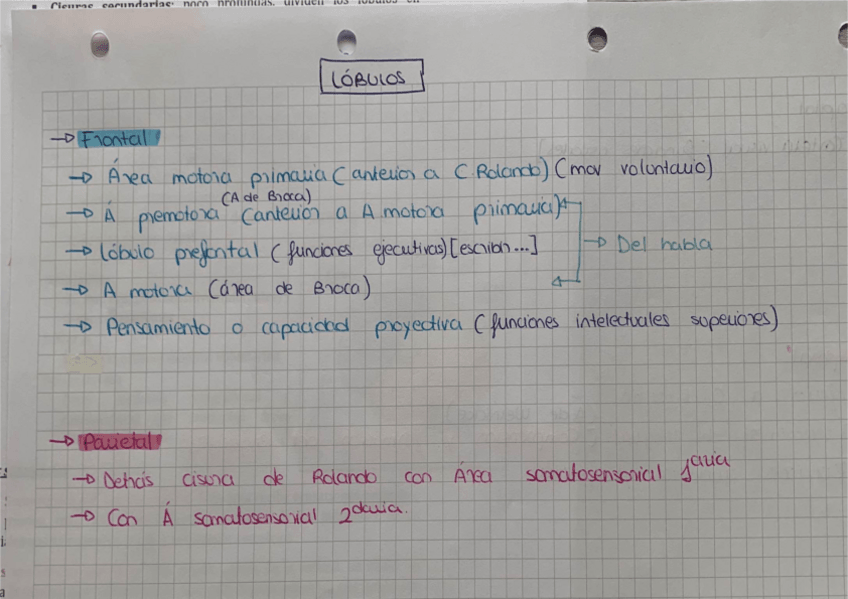 Cisuras secundarias: poco profundas, dividen los lóbulos en
LÓBULOS
→ Frontal
→ Área motora primaria (anterior a C. Rolando) (mov voluntario)
(A de Broca)
→ Á premotora (anterior a A motora primaria)
→ lóbulo prefontal (funciones ejecutivas) [escribir...]
→ Del habla
→ A motora (área de Broca)
→ Pensamiento o capacidad proyectiva (funciones intelectuales superiores)
→ Parietal
→ Detrás cisura de Rolando con Área somatosensorial 1aria
→ Con Á somatosensorial 2daria.